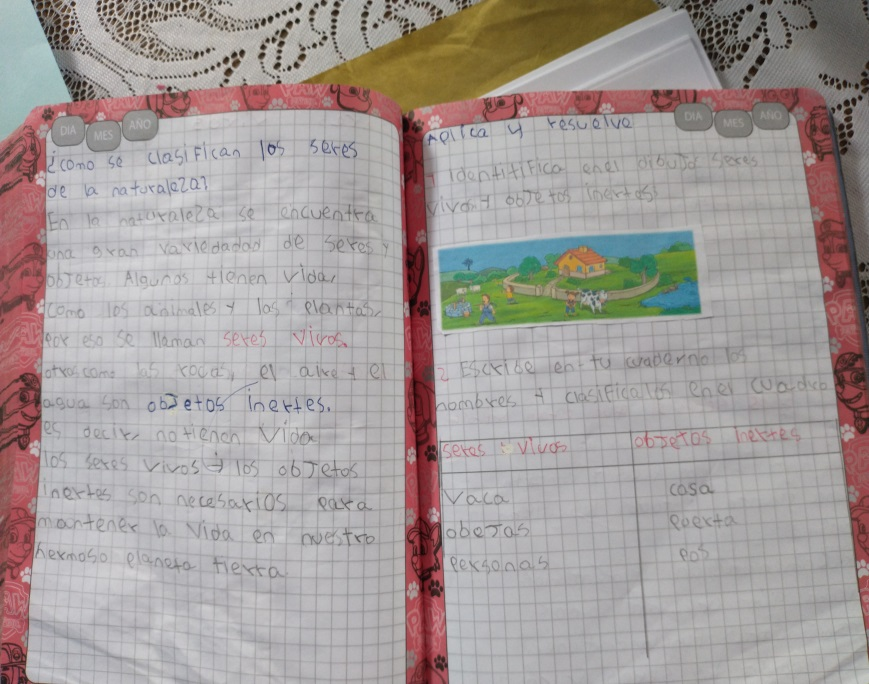 DIA MES AÑO
¿como se clasifican los seres
de la naturaleza?
En la naturaleza se encuentra
una gran variedadad de seres y
objetos Algunos tienen vida,
como los animales y las plantas,
por eso se llaman seres vivos.
otros como las rocas, el aire y el
agua son objetos inertes.
es decir, no tienen vida
los seres vivos y los objetos
inertes son necesarios para
mantener la vida en nuestro
hermoso planeta tierra
DIA MES AÑO
Aplica y resuelve
1 Identitifica en el dibujos seres
vivos y objetos inertes
2 Escribe en tu cuaderno los
nombres y clasificalos en el cuadro
seres vivos objetos inertes
vaca casa
obejas puerta
personas pos